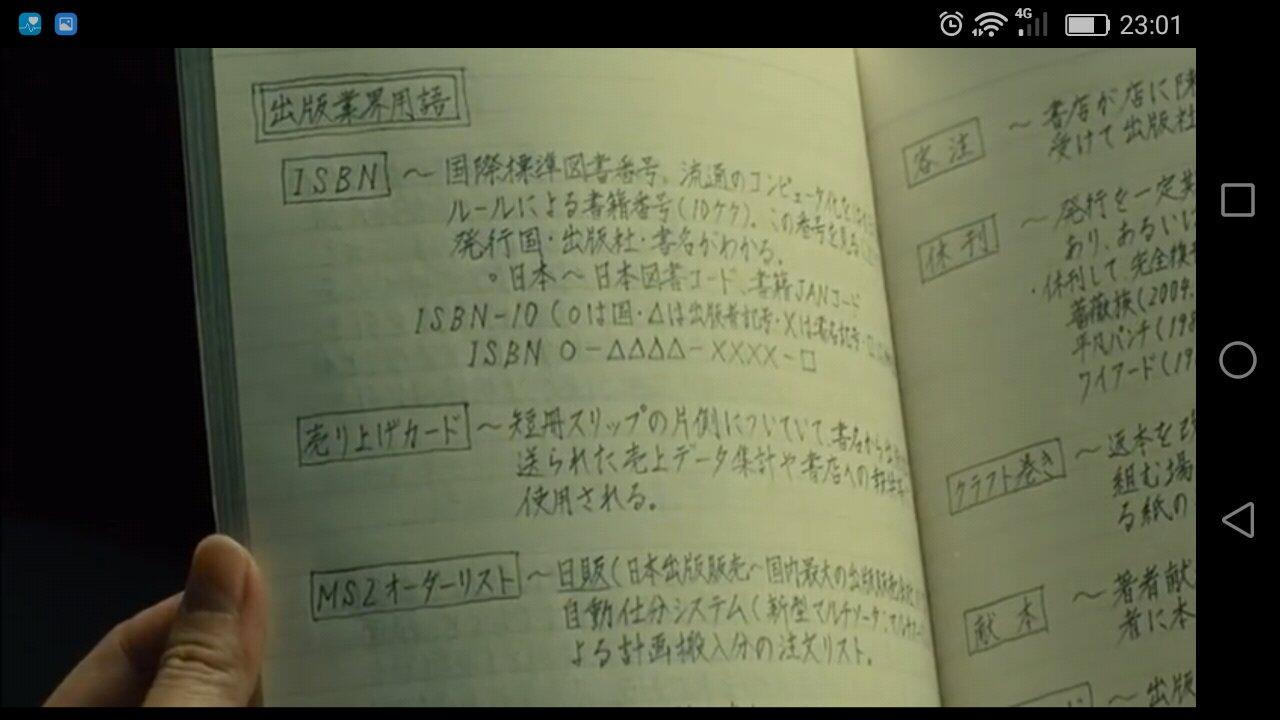 4G 23:01
出版業界用語
ISBN ～ 国際標準図書番号。流通のコンピュータ化を
ルールによる書籍番号(10ケタ)。この番号を見る
発行国・出版社・書名がわかる。
○日本～日本図書コード、書籍JANコード
ISBN-10 (○は国・△は出版者記号・×は書名記号・□
ISBN ○-△△△△-××××-□
売り上げカード ～ 短冊スリップの片側についていて、書名から
送られた売上データ集計や書店への報奨
使用される。
MSZオーダーリスト ～ 日販(日本出版販売～国内最大の出版販売会社
自動仕分システム(新型マルチソータ、マルチ
よる計画搬入分の注文リスト。
客注 ～ 書店が店に
受けて出版社
休刊 ～ 発行を一定
あり、あるいは
・休刊して、完全
薔薇族(2004.
平凡パンチ(198
ワイアード(19
クラフト巻き ～ 返本を
組む場
る紙の
献本 ～ 著者献
者に本
～ 出版